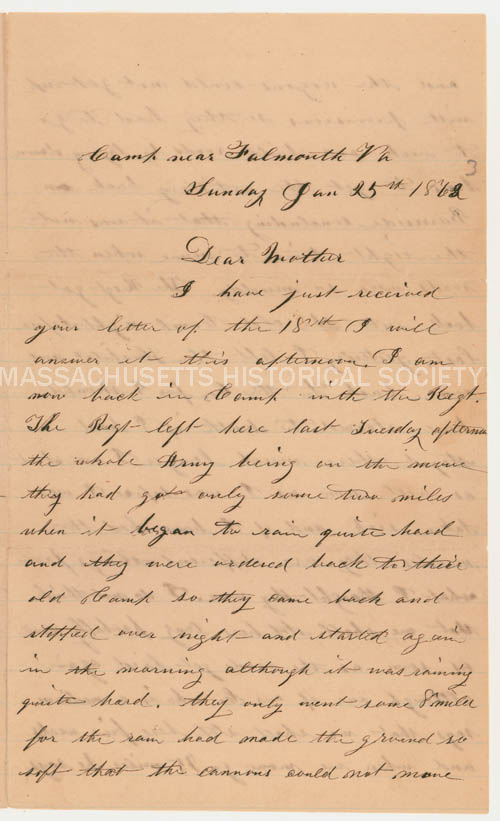 Camp near Falmouth Va
3
Sunday Jan 25th 1862
Dear Mother
I have just received
your letter of the 18th I will
answer it this afternoon. I am
MASSACHUSETTS HISTORICAL SOCIETY
now back in Camp with the Regt.
The Regt left here last Tuesday afternoon
the whole Army being on the move
they had got only some two miles
when it began to rain quite hard
and they were ordered back to their
old Camp so they came back and
stopped over night and started again
in the morning although it was raining
quite hard. they only went some 8 miles
for the rain had made the ground so
soft that the cannons could not move